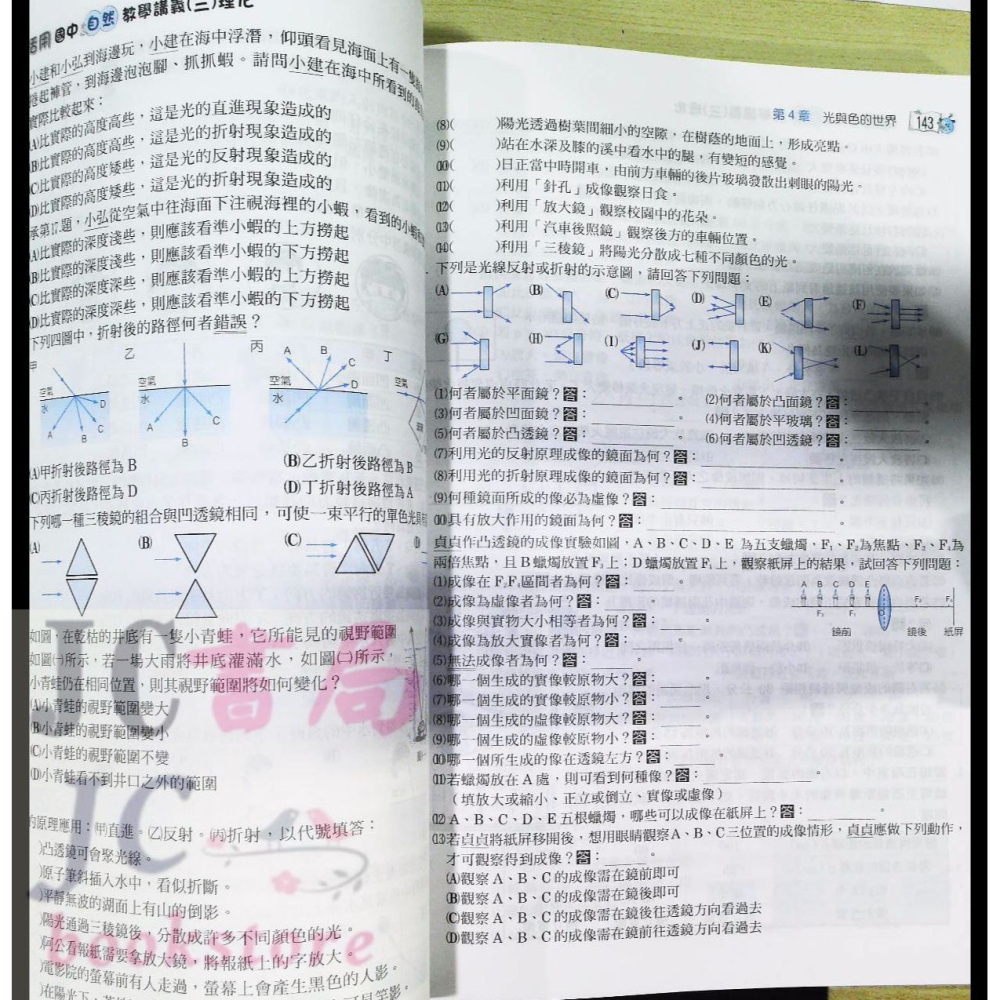 活用 國中 自然 教學講義(三)理化
小建和小弘到海邊玩，小建在海中浮潛，仰頭看見海面上有一
捲起褲管，到海邊泡泡腳、抓抓蝦。請問小建在海中所看到的
實際比較起來：
(A)比實際的高度高些，這是光的直進現象造成的
(B)比實際的高度高些，這是光的折射現象造成的
(C)比實際的高度矮些，這是光的反射現象造成的
(D)比實際的高度矮些，這是光的折射現象造成的
承第17.題，小弘從空氣中往海面下注視海裡的小蝦，看到的小蝦
(A)比實際的深度淺些，則應該看準小蝦的上方撈起
(B)比實際的深度淺些，則應該看準小蝦的下方撈起
(C)比實際的深度深些，則應該看準小蝦的上方撈起
(D)比實際的深度深些，則應該看準小蝦的下方撈起
下列四圖中，折射後的路徑何者錯誤？
甲 乙 丙 丁
空氣 水 A B C D
空氣 水 A B C
空氣 水 A B C D
空氣
(A)甲折射後路徑為 B (B)乙折射後路徑為 B
(C)丙折射後路徑為 D (D)丁折射後路徑為 A
下列哪一種三稜鏡的組合與凹透鏡相同，可使一束平行的單色光
(A) (B) (C) (D)
如圖，在乾枯的井底有一隻小青蛙，它所能見的視野範圍
如圖(一)所示，若一場大雨將井底灌滿水，如圖(二)所示，
小青蛙仍在相同位置，則其視野範圍將如何變化？
(A)小青蛙的視野範圍變大
(B)小青蛙的視野範圍變小
(C)小青蛙的視野範圍不變
(D)小青蛙看不到井口之外的範圍
的原理應用：(甲)直進。(乙)反射。(丙)折射，以代號填答：
)凸透鏡可會聚光線。
)原子筆斜插入水中，看似折斷。
)平靜無波的湖面上有山的倒影。
)陽光通過三稜鏡後，分散成許多不同顏色的光。
)阿公看報紙需要拿放大鏡，將報紙上的字放大。
)電影院的螢幕前有人走過，螢幕上會產生黑色的人影。
)在陽光下，
JC書局
JC
bookstore
第 4 章 光與色的世界 143
(8)( )陽光透過樹葉間細小的空隙，在樹蔭的地面上，形成亮點。
(9)( )站在水深及膝的溪中看水中的腿，有變短的感覺。
(10)( )日正當中時開車，由前方車輛的後片玻璃發散出刺眼的陽光。
(11)( )利用「針孔」成像觀察日食。
(12)( )利用「放大鏡」觀察校園中的花朵。
(13)( )利用「汽車後照鏡」觀察後方的車輛位置。
(14)( )利用「三稜鏡」將陽光分散成七種不同顏色的光。
下列是光線反射或折射的示意圖，請回答下列問題：
(A) (B) (C) (D) (E) (F)
(G) (H) (I) (J) (K) (L)
(1)何者屬於平面鏡？答： 。 (2)何者屬於凸面鏡？答： 。
(3)何者屬於凹面鏡？答： 。 (4)何者屬於平玻璃？答： 。
(5)何者屬於凸透鏡？答： 。 (6)何者屬於凹透鏡？答： 。
(7)利用光的反射原理成像的鏡面為何？答： 。
(8)利用光的折射原理成像的鏡面為何？答： 。
(9)何種鏡面所成的像必為虛像？答： 。
(10)具有放大作用的鏡面為何？答： 。
貞貞作凸透鏡的成像實驗如圖，A、B、C、D、E 為五支蠟燭，F₁、F₂為焦點、F₃、F₄為
兩倍焦點，且 B 蠟燭放置 F₃ 上；D 蠟燭放置 F₁ 上，觀察紙屏上的結果，試回答下列問題：
(1)成像在 F₂F₄區間者為何？答： 。
(2)成像為虛像者為何？答： 。
(3)成像與實物大小相等者為何？答： 。
(4)成像為放大實像者為何？答： 。
(5)無法成像者為何？答： 。
A B C D E
F₃ F₁ O F₂ F₄
鏡前 鏡後 紙屏
(6)哪一個生成的實像較原物大？答： 。
(7)哪一個生成的實像較原物小？答： 。
(8)哪一個生成的虛像較原物大？答： 。
(9)哪一個生成的虛像較原物小？答： 。
(10)哪一個所生成的像在透鏡左方？答： 。
(11)若蠟燭放在 A 處，則可看到何種像？答： 。
（填放大或縮小、正立或倒立、實像或虛像）
(12)A、B、C、D、E 五根蠟燭，哪些可以成像在紙屏上？答： 。
(13)若貞貞將紙屏移開後，想用眼睛觀察 A、B、C 三位置的成像情形，貞貞應做下列動作，
才可觀察得到成像？答： 。
(A)觀察 A、B、C 的成像需在鏡前即可
(B)觀察 A、B、C 的成像需在鏡後即可
(C)觀察 A、B、C 的成像需在鏡後往透鏡方向看過去
(D)觀察 A、B、C 的成像需在鏡前往透鏡方向看過去